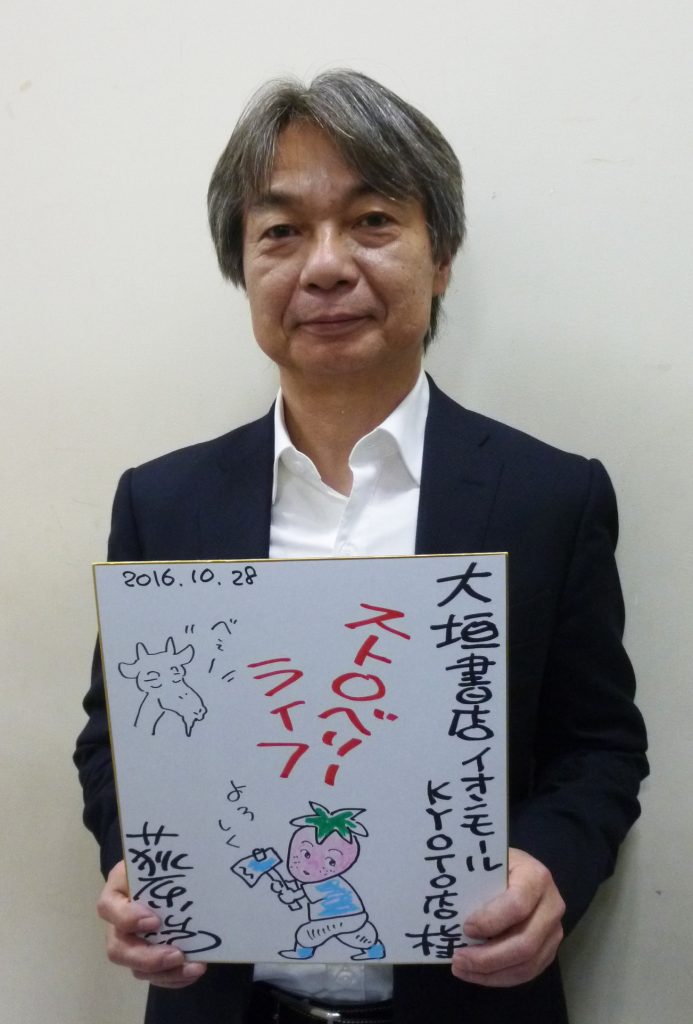 2016.10.28
大垣書店イオンモール
KYOTO店様
ストロベリー
ライフ
べぇー
よろ
しく